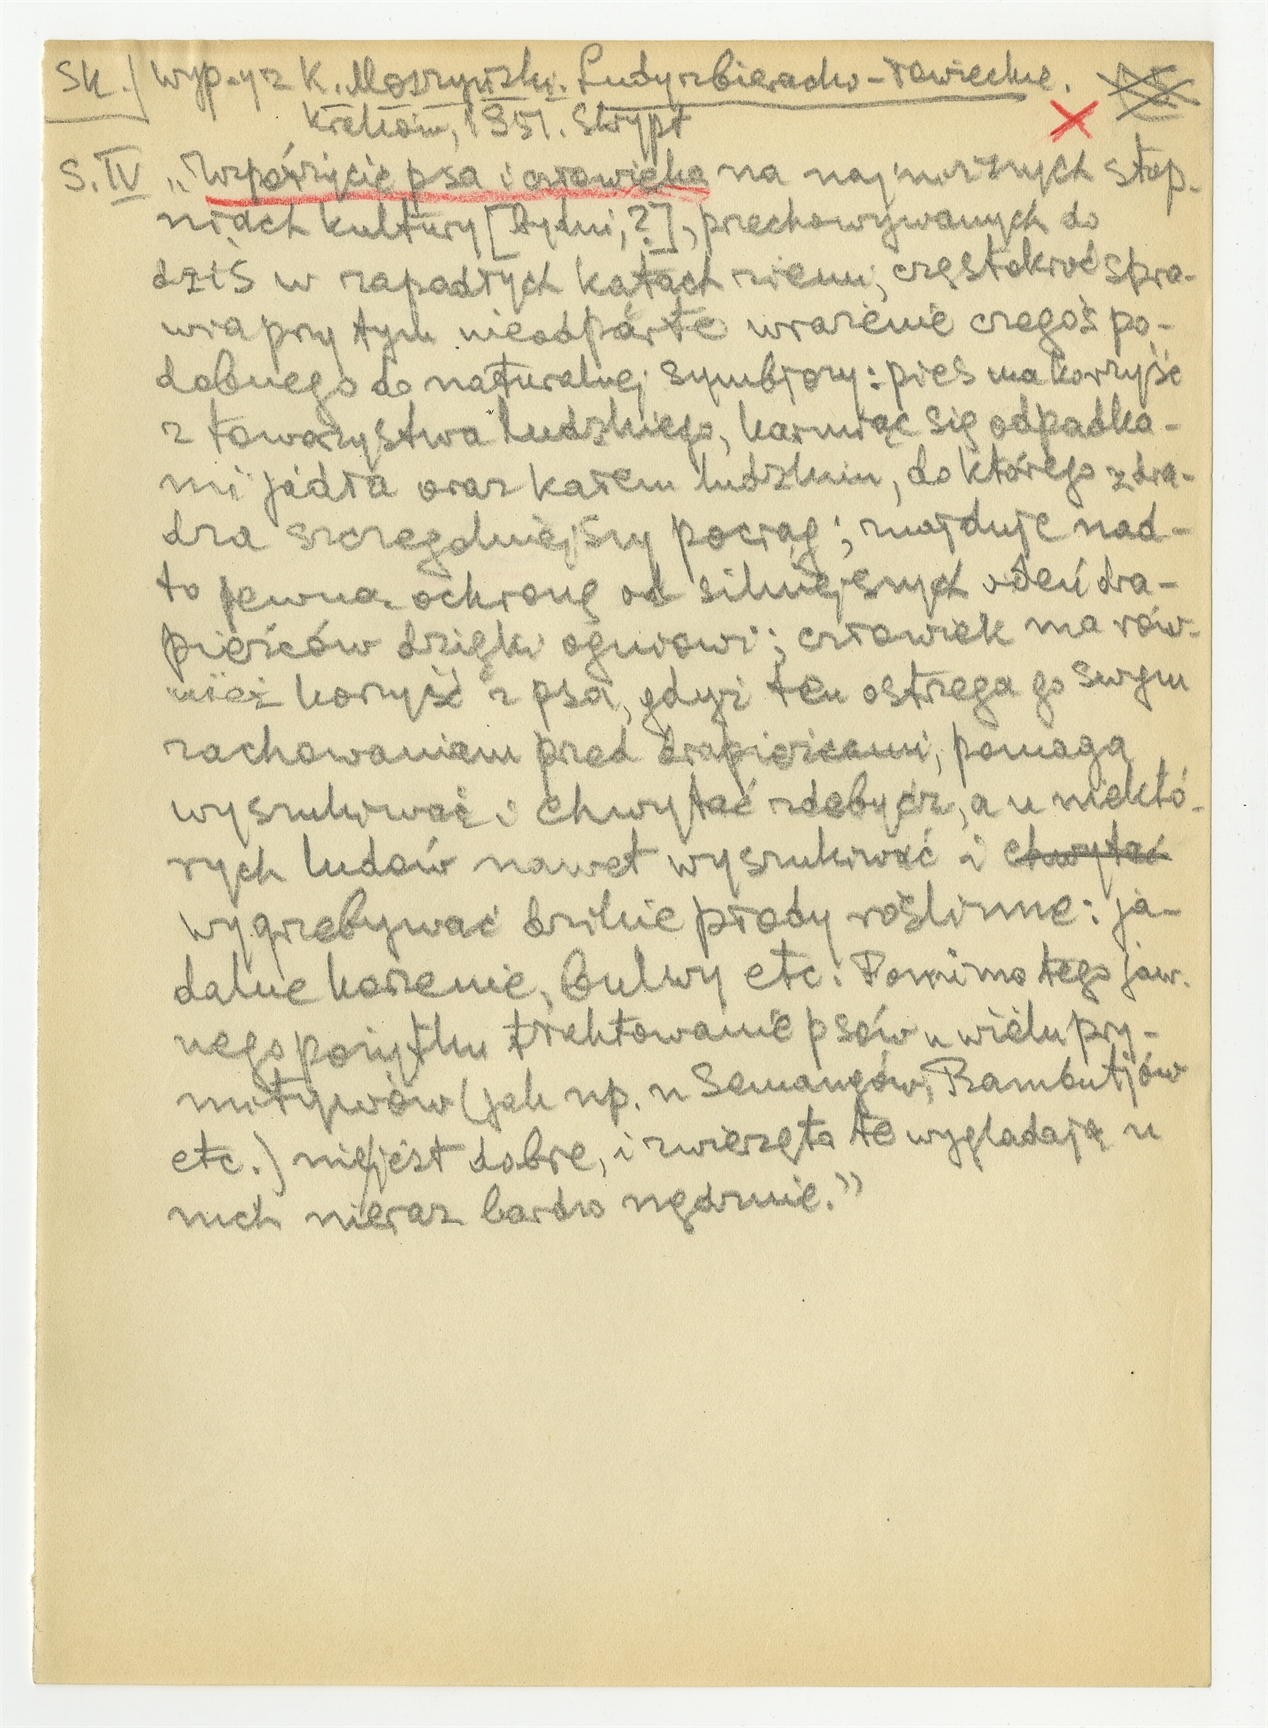 Sk.) Wyp-y z K. Moszyński. Ludy zbieracko-łowieckie.
Kraków, 1951. Skrypt
S. IV „Współżycie psa i człowieka na najniższych stop-
niach kultury [Dydni, ?], przechowywanych do
dziś w zapadłych kątach ziemi, częstokroć spra-
wia przy tym nieodparte wrażenie czegoś po-
dobnego do naturalnej symbiozy: pies ma korzyść
z towarzystwa ludzkiego, karmiąc się odpadka-
mi jadła oraz kałem ludzkim, do którego zdra-
dza szczególniejszy pociąg; znajduje nad-
to pewną ochronę od silniejszych odeń dra-
pieżców dzięki ogniowi; człowiek ma rów-
nież korzyść z psa, gdyż ten ostrzega go swym
zachowaniem przed drapieżcami, pomaga
wyszukiwać i chwytać zdobycz, a u niektó-
rych ludów nawet wyszukiwać i chwytać
wygrzebywać dzikie płody roślinne: ja-
dalne korzenie, bulwy etc. Pomimo tego jaw-
nego pożytku traktowanie psów u wielu pry-
mitywów (jak np. u Semangów, Bambutjów
etc.) nie jest dobre, i zwierzęta te wyglądają u
nich nieraz bardzo nędznie."